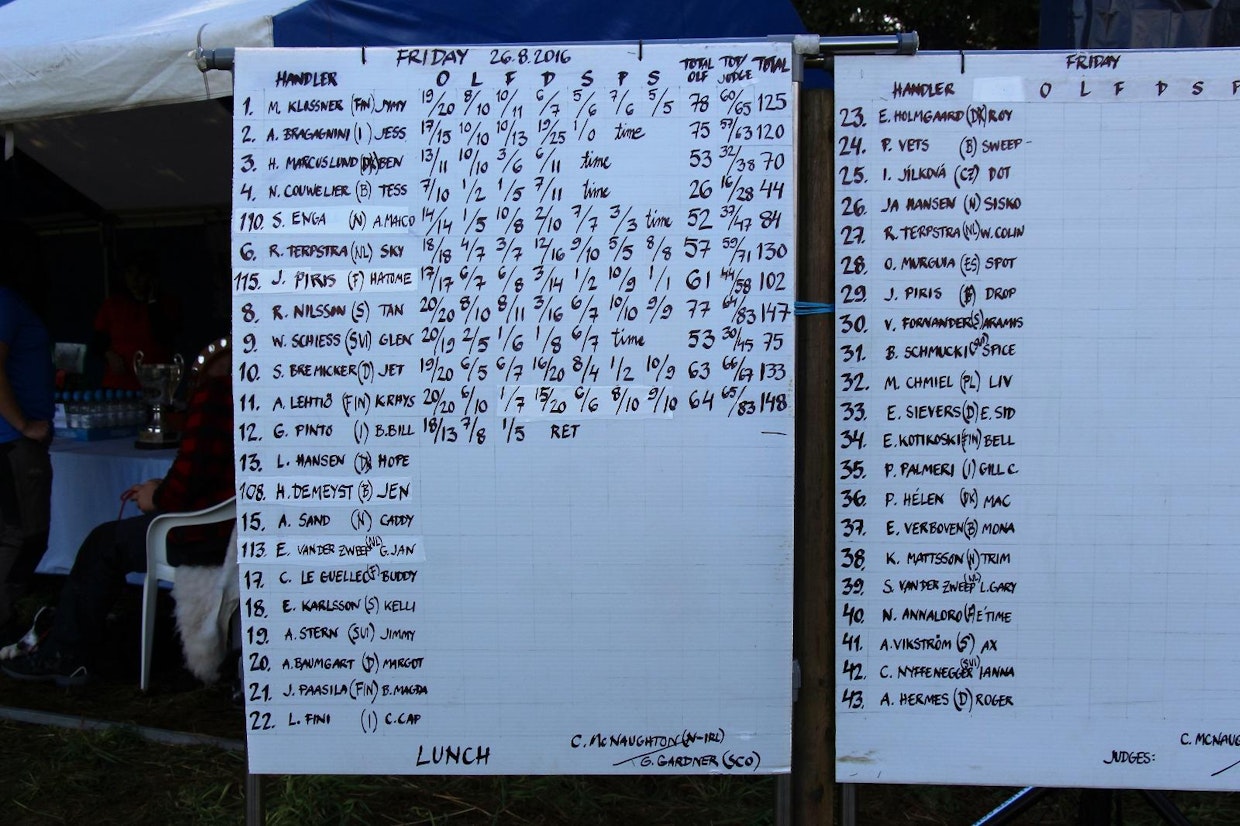 FRIDAY 26.8.2016
HANDLER O L F D S P S TOTAL OLF TOT/JUDGE TOTAL
1. M. KLASSNER (FIN) JYMY 19/20 8/10 10/11 6/7 5/6 7/6 5/5 78 60/65 125
2. A. BRAGAGNINI (I) JESS 17/15 10/10 10/13 19/25 1/0 time 75 57/63 120
3. H. MARCUSLUND (DK) BEN 13/11 10/10 3/6 6/11 time 53 32/38 70
4. N. COUWELIER (B) TESS 7/10 1/2 1/5 7/11 time 26 16/28 44
110. S. ENGA (N) A.MAICO 14/14 1/5 10/8 2/10 7/7 3/3 time 52 37/47 84
6. R. TERPSTRA (NL) SKY 18/18 4/7 3/7 12/16 9/10 5/5 8/8 57 59/71 130
115. J. PIRIS (F) HATOME 17/17 6/7 6/8 3/14 1/2 10/9 1/1 61 44/58 102
8. R. NILSSON (S) TAN 20/20 8/10 8/11 3/16 6/7 10/10 9/9 77 64/83 147
9. W. SCHIESS (SUI) GLEN 20/19 2/5 1/6 1/8 6/7 time 53 30/45 75
10. S. BREMICKER (D) JET 19/20 6/5 6/7 16/20 8/4 1/2 10/9 63 66/67 133
11. A. LEHTIÖ (FIN) K.RHYS 20/20 6/10 1/7 15/20 6/6 8/10 9/10 64 65/83 148
12. G. PINTO (I) B.BILL 18/13 7/8 1/5 RET —
13. L. HANSEN (DK) HOPE
108. H. DEMEYST (B) JEN
15. A. SAND (N) CADDY
113. E. VAN DER ZWEEP (NL) G.JAN
17. C. LE GUELLEC (F) BUDDY
18. E. KARLSSON (S) KELLI
19. A. STERN (SUI) JIMMY
20. A. BAUMGART (D) MARGOT
21. J. PAASILA (FIN) B.MAGDA
22. L. FINI (I) C.CAP
LUNCH C. McNAUGHTON (N-IRL)
G. GARDNER (SCO)
FRIDAY
HANDLER O L F D S P
23. E. HOLMGAARD (DK) ROY
24. P. VETS (B) SWEEP
25. I. JÍLKOVÁ (CZ) DOT
26. JA HANSEN (N) SISKO
27. R. TERPSTRA (NL) W.COLIN
28. O. MURGUIA (ES) SPOT
29. J. PIRIS DROP
30. V. FORNANDER (S) ARAMIS
31. B. SCHMUCKI (SUI) SPICE
32. M. CHMIEL (PL) LIV
33. E. SIEVERS (D) E.SID
34. E. KOTIKOSKI (FIN) BELL
35. P. PALMERI (I) GILL C.
36. P. HÉLEN (DK) MAC
37. E. VERBOVEN (B) MONA
38. K. MATTSSON (N) TRIM
39. S. VAN DER ZWEEP (NL) L.GARY
40. N. ANNALORO E'TIME
41. A. VIKSTRÖM (S) AX
42. C. NYFFENEGGER (SUI) IANNA
43. A. HERMES (D) ROGER
C. MCNAUG
JUDGES: